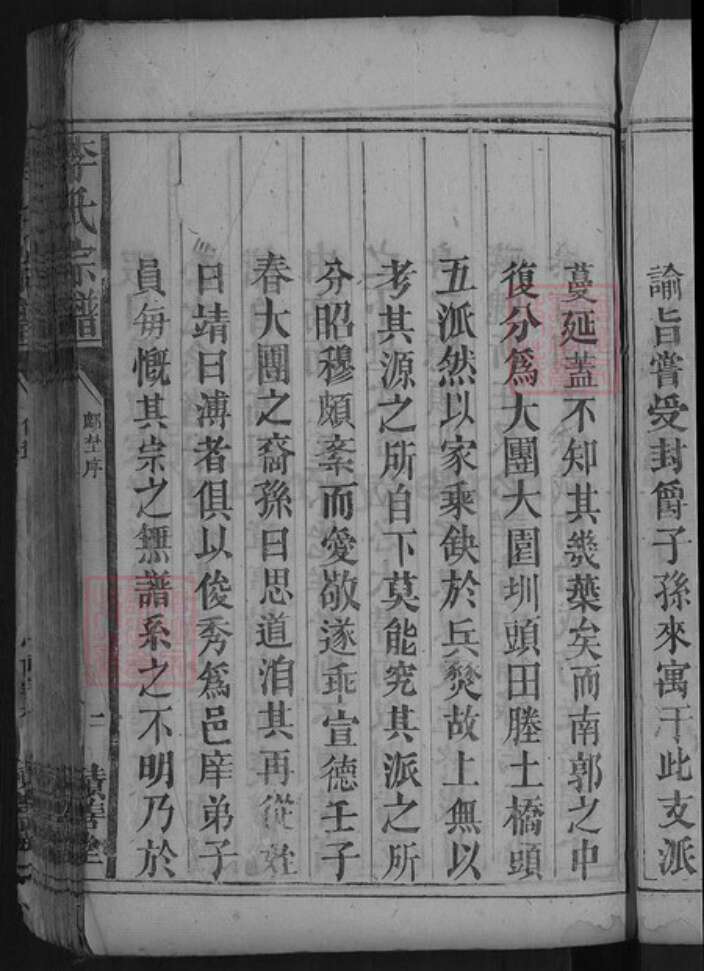 諭旨嘗受封爵子孫來寓于此支派
蔓延蓋不知其幾葉矣而南郭之中
復分爲大團大園圳頭田塍土橋頭
五派然以家乘缺於兵燹故上無以
考其源之所自下莫能究其派之所
分昭穆頗紊而愛敬遂乖宣德壬子
春大團之裔孫曰思道洎其再從姪
曰靖曰溥者俱以俊秀爲邑庠弟子
員每慨其宗之無譜系之不明乃於
李氏宗譜
序
二